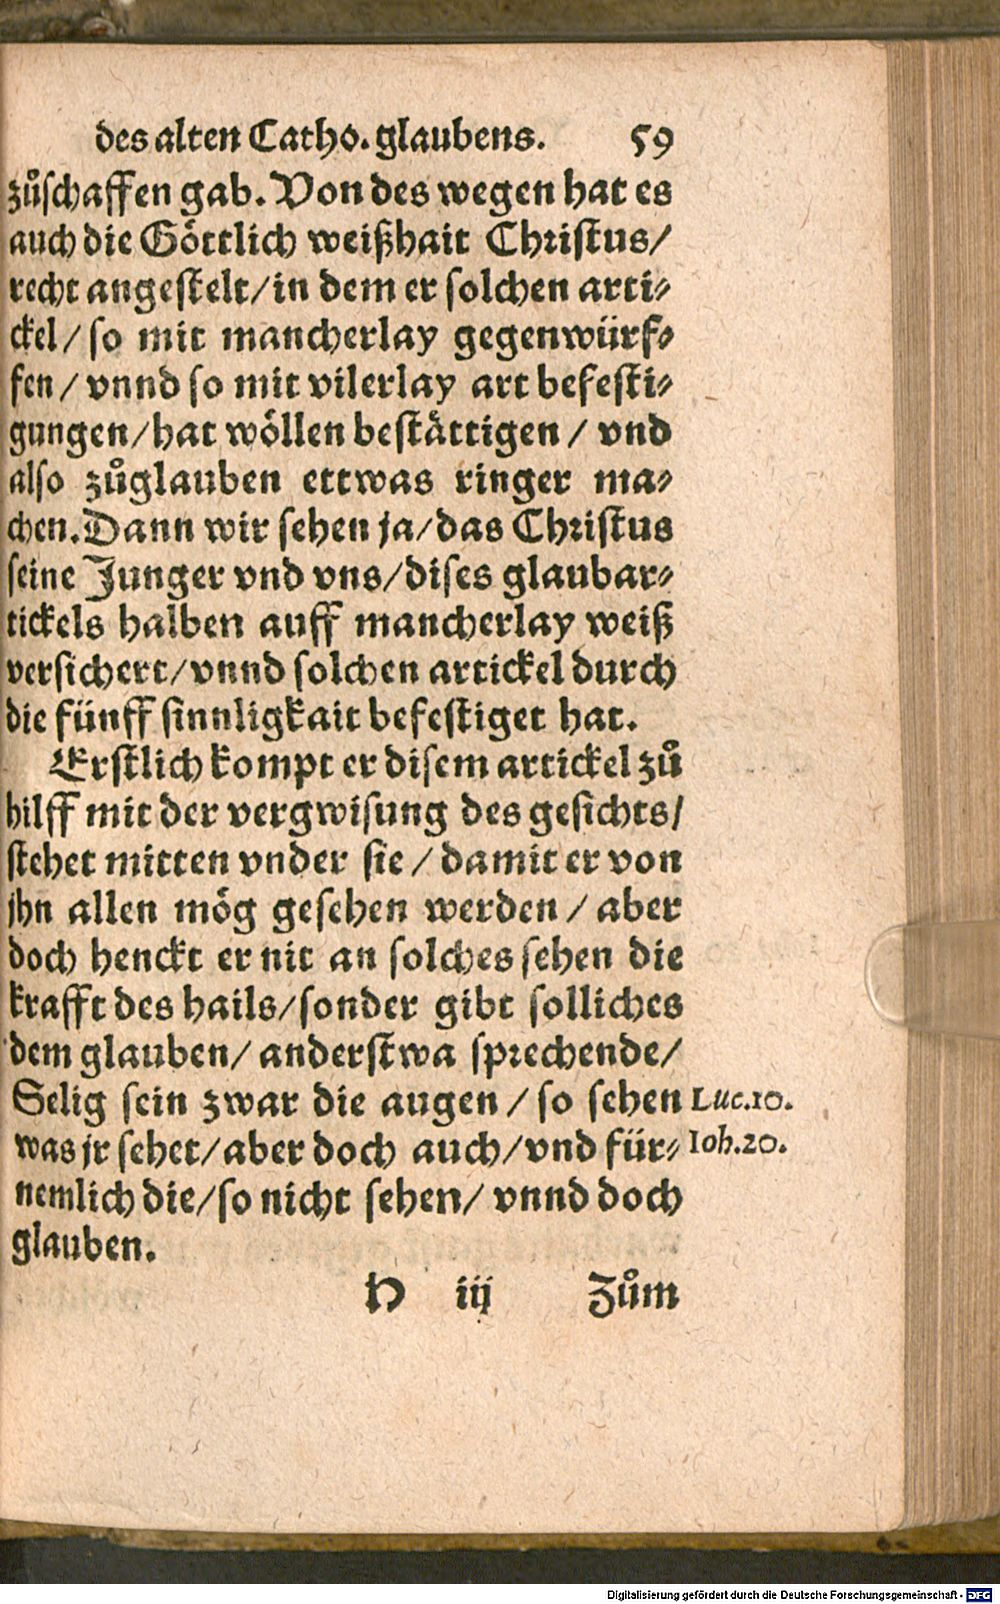 des alten Catho. glaubens. 59
zůschaffen gab. Von des wegen hat es
auch die Göttlich weißhait Christus/
recht angestelt/in dem er solchen arti⸗
ckel/so mit mancherlay gegenwürf⸗
fen/vnnd so mit vilerlay art befesti⸗
gungen/hat wöllen bestättigen/vnd
also zůglauben ettwas ringer ma⸗
chen. Dann wir sehen ja/das Christus
seine Junger vnd vns/dises glaubar⸗
tickels halben auff mancherlay weiß
versichert/vnnd solchen artickel durch
die fünff sinnligkait befestiget hat.
Erstlich kompt er disem artickel zů
hilff mit der vergwisung des gesichts/
stehet mitten vnder sie/damit er von
jhn allen mög gesehen werden/aber
doch henckt er nit an solches sehen die
krafft des hails/sonder gibt solliches
dem glauben/anderstwa sprechende/
Selig sein zwar die augen/so sehen Luc.10.
was jr sehet/aber doch auch/vnd für⸗ Ioh.20.
nemlich die/so nicht sehen/vnnd doch
glauben.
H iij Zům
Digitalisierung gefördert durch die Deutsche Forschungsgemeinschaft - DFG